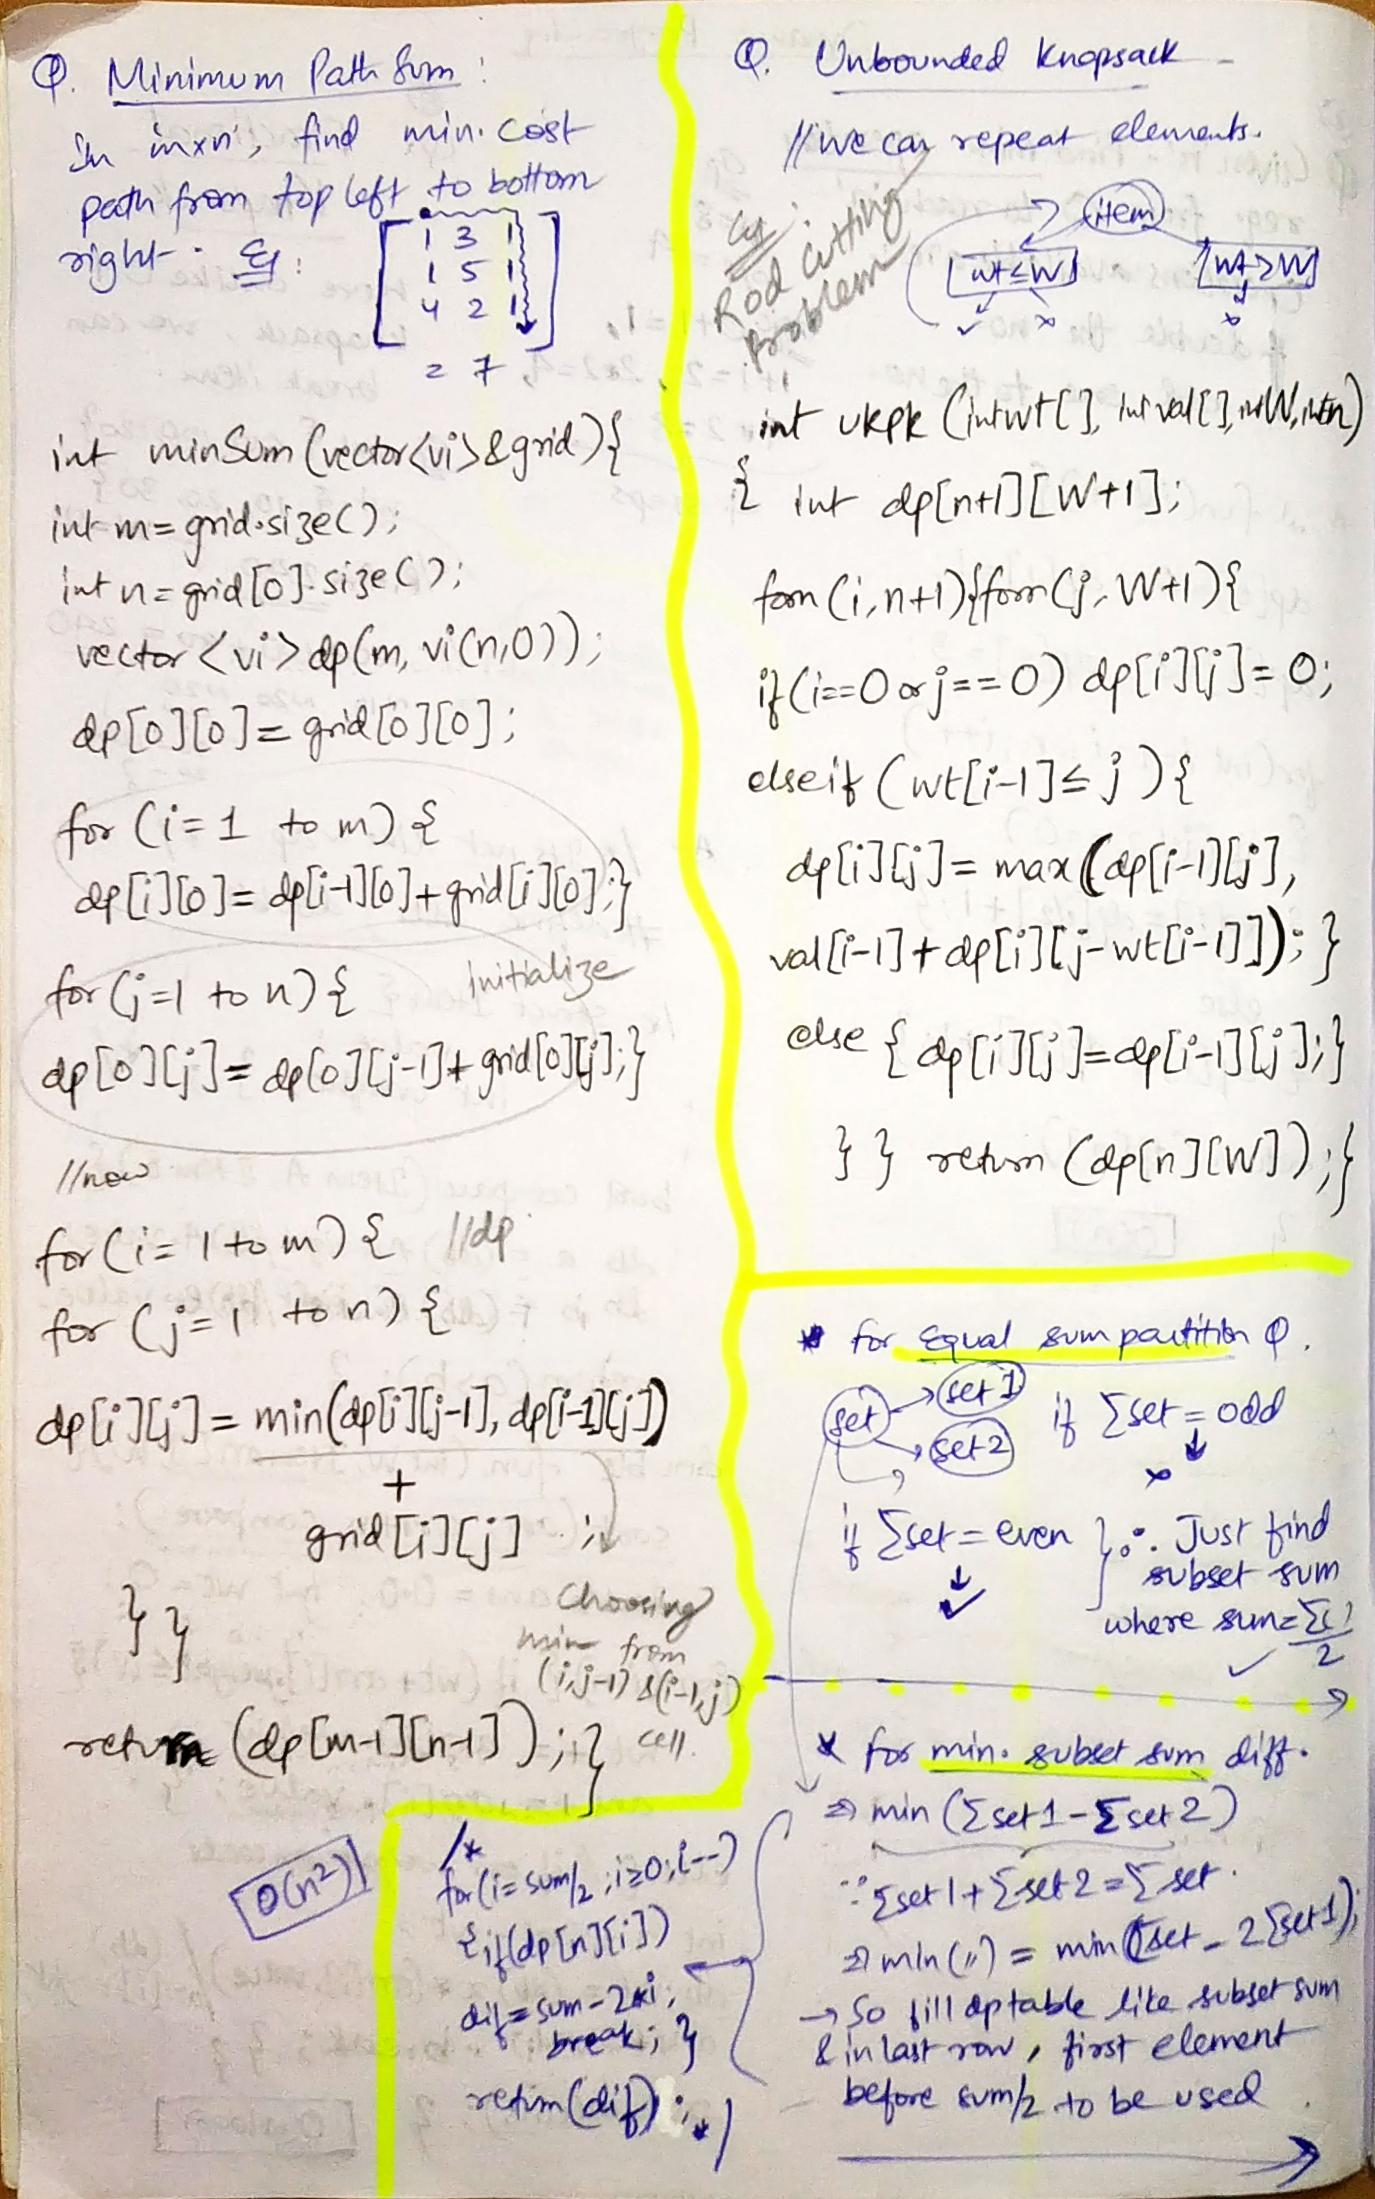 Q. Minimum Path Sum :
In 'mxn', find min. cost
path from top left to bottom
right. Eg :
1 3 1
1 5 1
4 2 1
= 7
int minSum (vector<vi>&grid){
int m= grid.size();
int n= grid[0].size();
vector <vi> dp(m, vi(n,0));
dp[0][0]= grid[0][0];
for (i=1 to m) {
dp[i][0]= dp[i-1][0]+grid[i][0];}
for (j=1 to n) { initialize
dp[0][j]= dp[0][j-1]+grid[0][j];}
//now
for (i= 1 to m) { //dp
for (j=1 to n) {
dp[i][j]= min(dp[i][j-1], dp[i-1][j])
+
grid[i][j] ;
} }
Choosing
min from
(i,j-1) &(i-1,j)
cell.
return (dp[m-1][n-1]);}
O(n²)
Q. Unbounded Knapsack
//we can repeat elements.
Eg:
Rod Cutting
Problem
item
wt≤W wt>W
✓ x x
int ukpk (int wt[], int val[], int W, int n)
{ int dp[n+1][W+1];
forn (i,n+1){forn(j,W+1){
if(i==0 or j==0) dp[i][j]= 0;
else if (wt[i-1]≤ j ) {
dp[i][j]= max(dp[i-1][j],
val[i-1]+dp[i][j-wt[i-1]]); }
else { dp[i][j]=dp[i-1][j];}
} } return (dp[n][W]);}
* for Equal sum partition Q.
set set 1 set 2
if Σset = odd
x
if Σset = even } ∴ Just find
✓ subset sum
where sum=Σ()/2
✓
* for min. subset sum diff.
⇒ min (Σset1-Σset2)
∵ Σset1+Σset2=Σset.
⇒ min(〃) = min(Σset - 2Σset1);
→ So fill dp table like subset sum
& in last row, first element
before sum/2 to be used.
/*
for(i=sum/2;i≥0;i--)
{if(dp[n][i])
dif=sum-2*i;
break; }
return(dif);*/